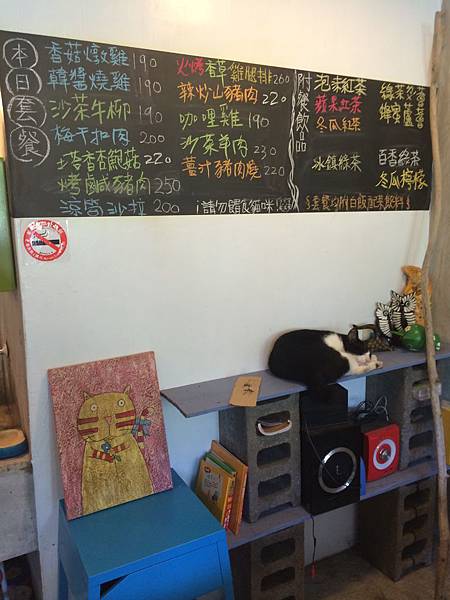 本日套餐
香菇燉雞 190
韓醬燒雞 190
沙茶牛柳 190
梅干扣肉 200
塔香杏鮑菇 220
烤鹹豬肉 250
涼筍沙拉 200
火烤香草雞腿排 260
辣炒山豬肉 220
咖哩雞 190
沙茶羊肉 230
薑汁豬肉燒 220
!請勿餵食貓咪!
附餐飲品
泡沫紅茶
蘋果紅茶
冬瓜紅茶
冰鎮綠茶
蜂蜜蘆薈
百香綠茶
冬瓜檸檬
套餐均附白飯配菜飲料